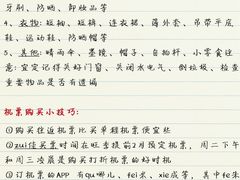 牙刷、防晒、卸妆品等
4、衣物:短袖、短裤、连衣裙、薄外套、吊带平底
鞋、运动鞋、防晒帽等
5、其他:晴雨伞、墨镜、帽子、自拍杆、小零食注
意:宜定记得关好门窗、关闭水电气、倒垃圾、检查
重要物品是否有遗漏
机票购买小技巧:
①购买往返机票比买单程机票便宜些
②zui佳买票时间在旺季提前2月预定机票,周二下午
和周三凌晨是购买打折机票的好时机
③订机票的APP 有qu哪儿、fei米、xie成等,其中fe米